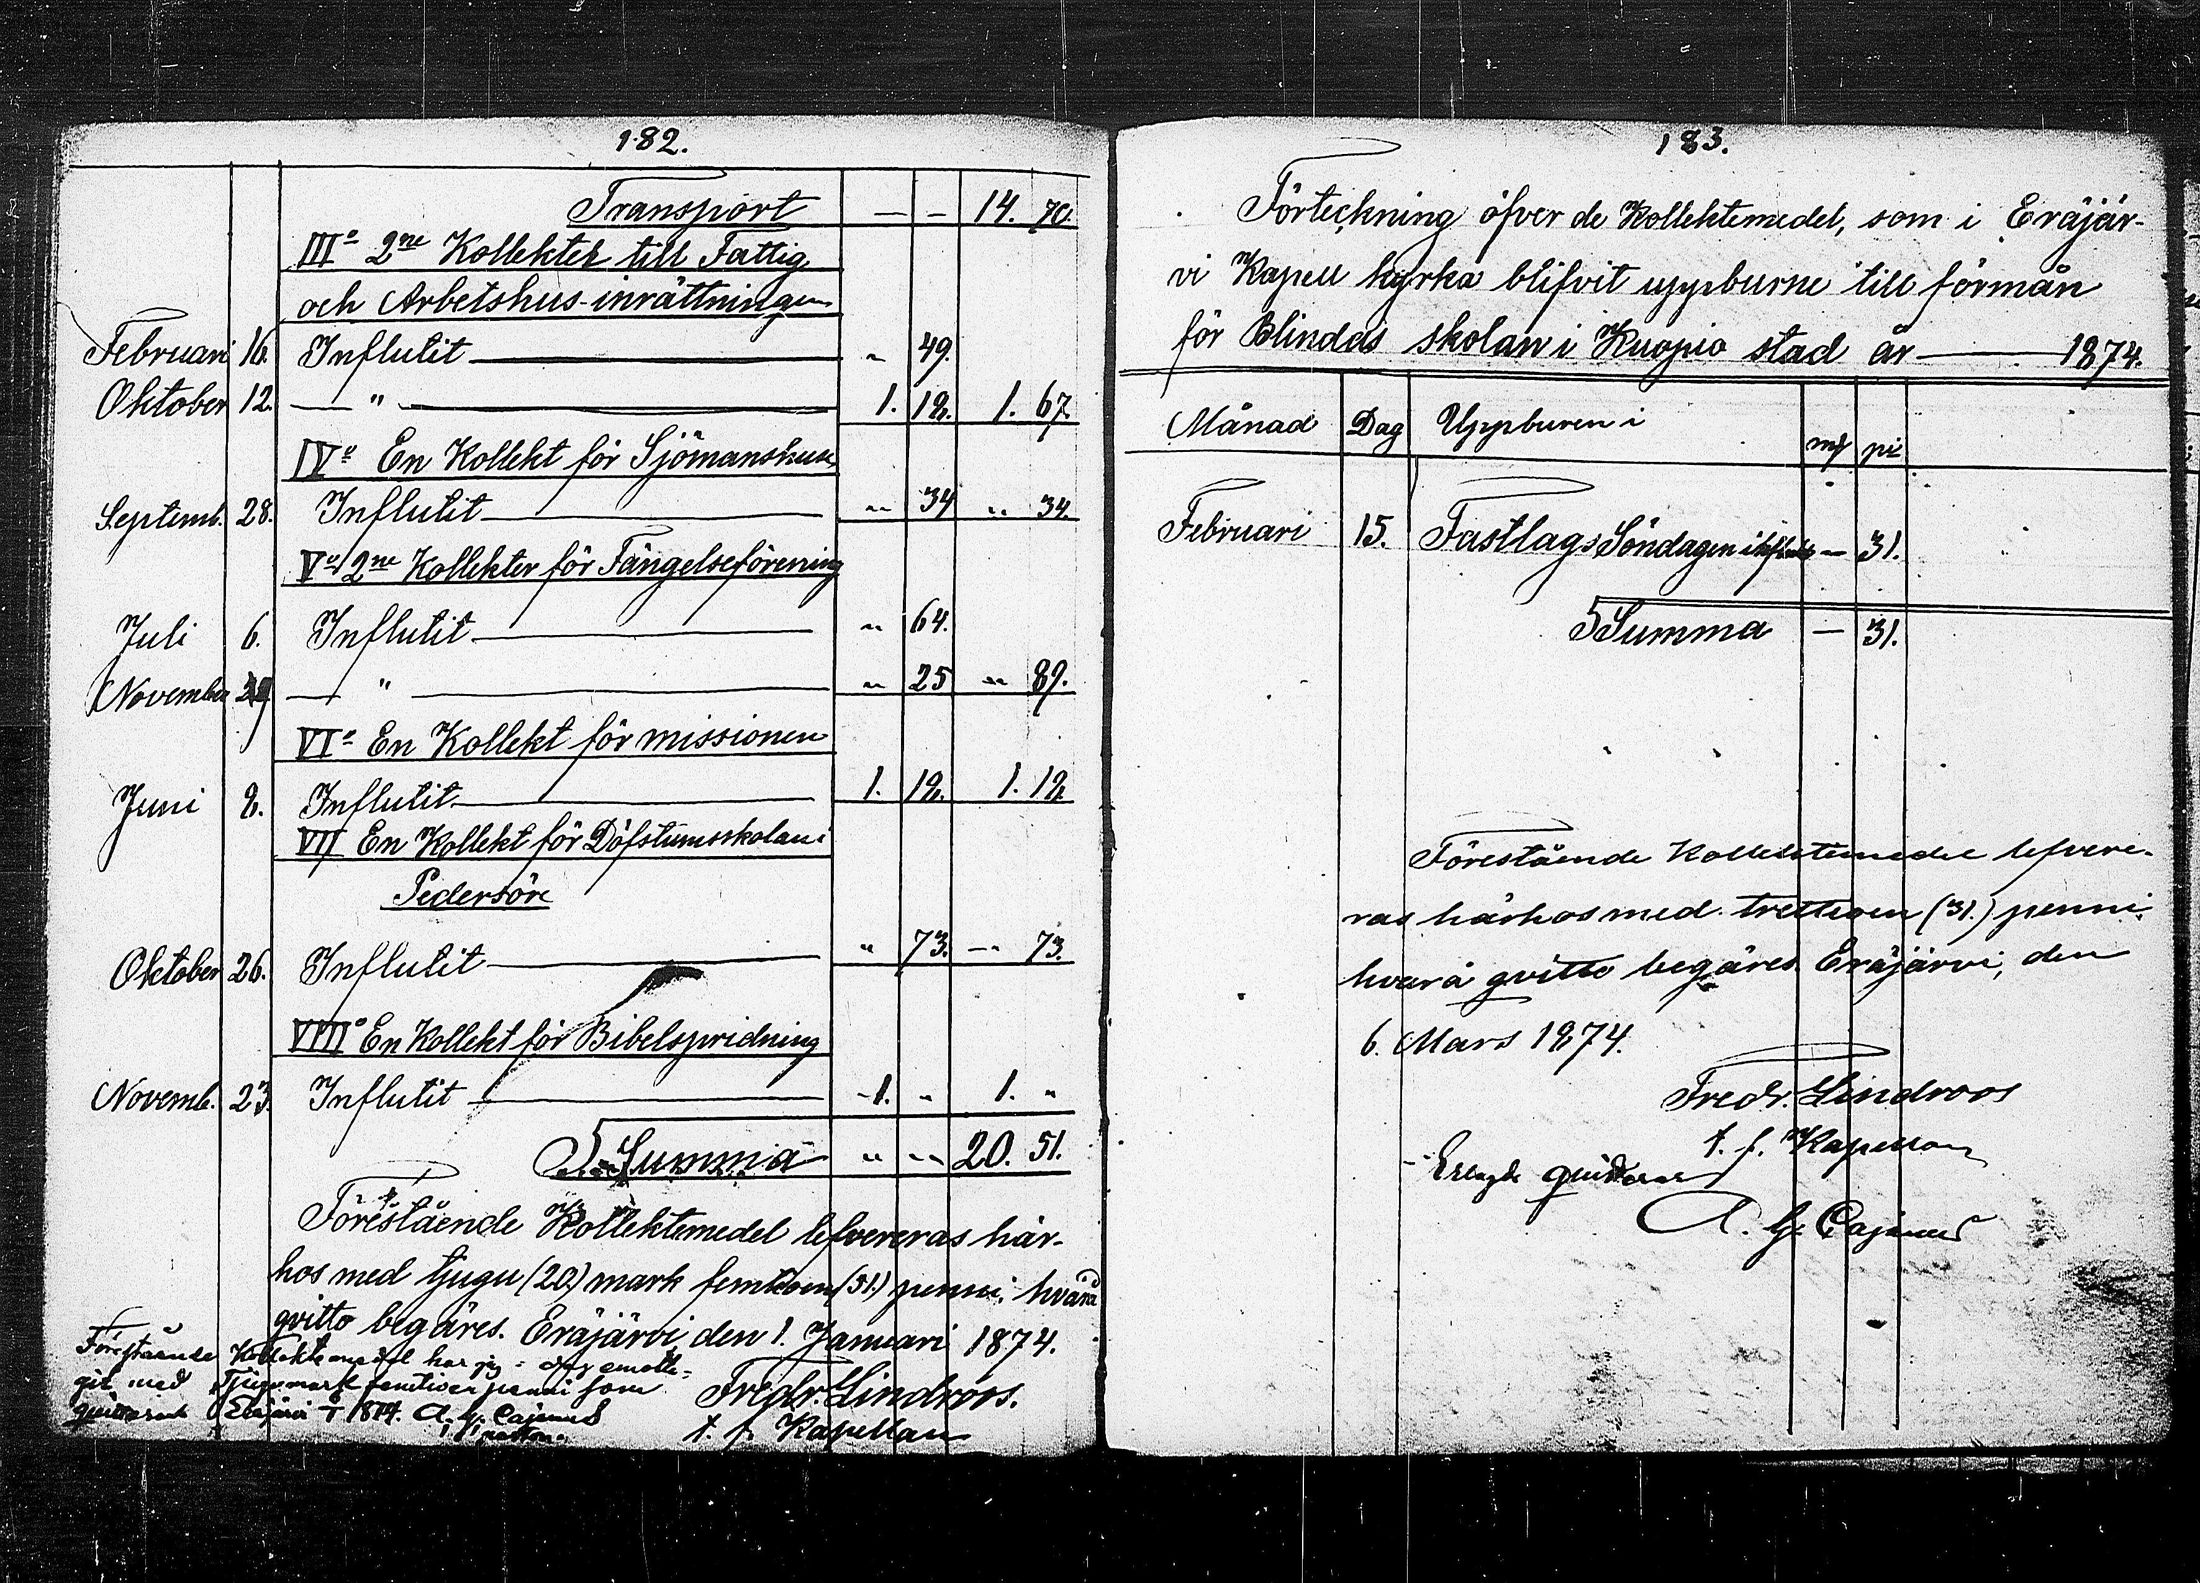 182.
Transport — — 14. 70.
IIIo 2ne Kollekter till Fattig
och Arbetshus-inrättningen
Februari 16. Influtit " 49.
Oktober 12. — " — 1. 18. 1. 67.
IVo En Kollekt för Sjömanshuse
Septemb. 28. Influtit " 34 " 34.
Vo 2ne Kollekter för Fängelseförening
Juli 6. Influtit " 64.
November — " — " 25 " 89.
VIo En Kollekt för missionen
Juni 8. Influtit 1. 18. 1. 18
VII En Kollekt för Döfstumsskolan i
Pedersöre
Oktober 26. Influtit " 73. " 73.
VIIIo En Kollekt för Bibelspridning
Novemb. 23. Influtit 1. " 1. "
Summa " " 20. 51.
Förestående Kollektemedel lefvereras här-
hos med tjugu (20) mark femtioen (51.) penni, hvarå
qvitto begäres. Eräjärvi den 1. Januari 1874.
Fredr. Lindroos.
t. f. Kapellan
Förestående Kollektemedel har jag emotta-
git med Tjugu mark femtioen penni som
qvitteras Eräjärvi 1874. A. G. Cajanus
183.
Förteckning öfver de Kollektemedel, som i Eräjär-
vi Kapell kyrka blifvit uppburne till förmån
för Blindas skolan i Kuopio stad år — 1874.
Månad Dag Uppburen i mk pi
Februari 15. Fastlags Söndagen influtit — 31.
Summa — 31.
Förestående Kollektemedel lefvere-
ras härhos med trettioen (31.) penni,
hvarå qvitto begäres. Eräjärvi, den
6. Mars 1874.
Fredr. Lindroos
t. f. Kapellan
Erlagde qvitteras
A. G. Cajanus